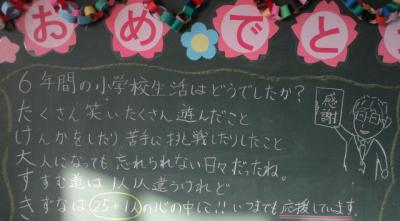 おめでと
6年間の小学校生活はどうでしたか?
たくさん笑いたくさん遊んだこと
けんかをしたり苦手に挑戦したりしたこと
大人になっても忘れられない日々だったね。
すすむ道は1人1人違うけれど
きずなは25+1人の心の中に!!いつまでも応援しています。
感謝